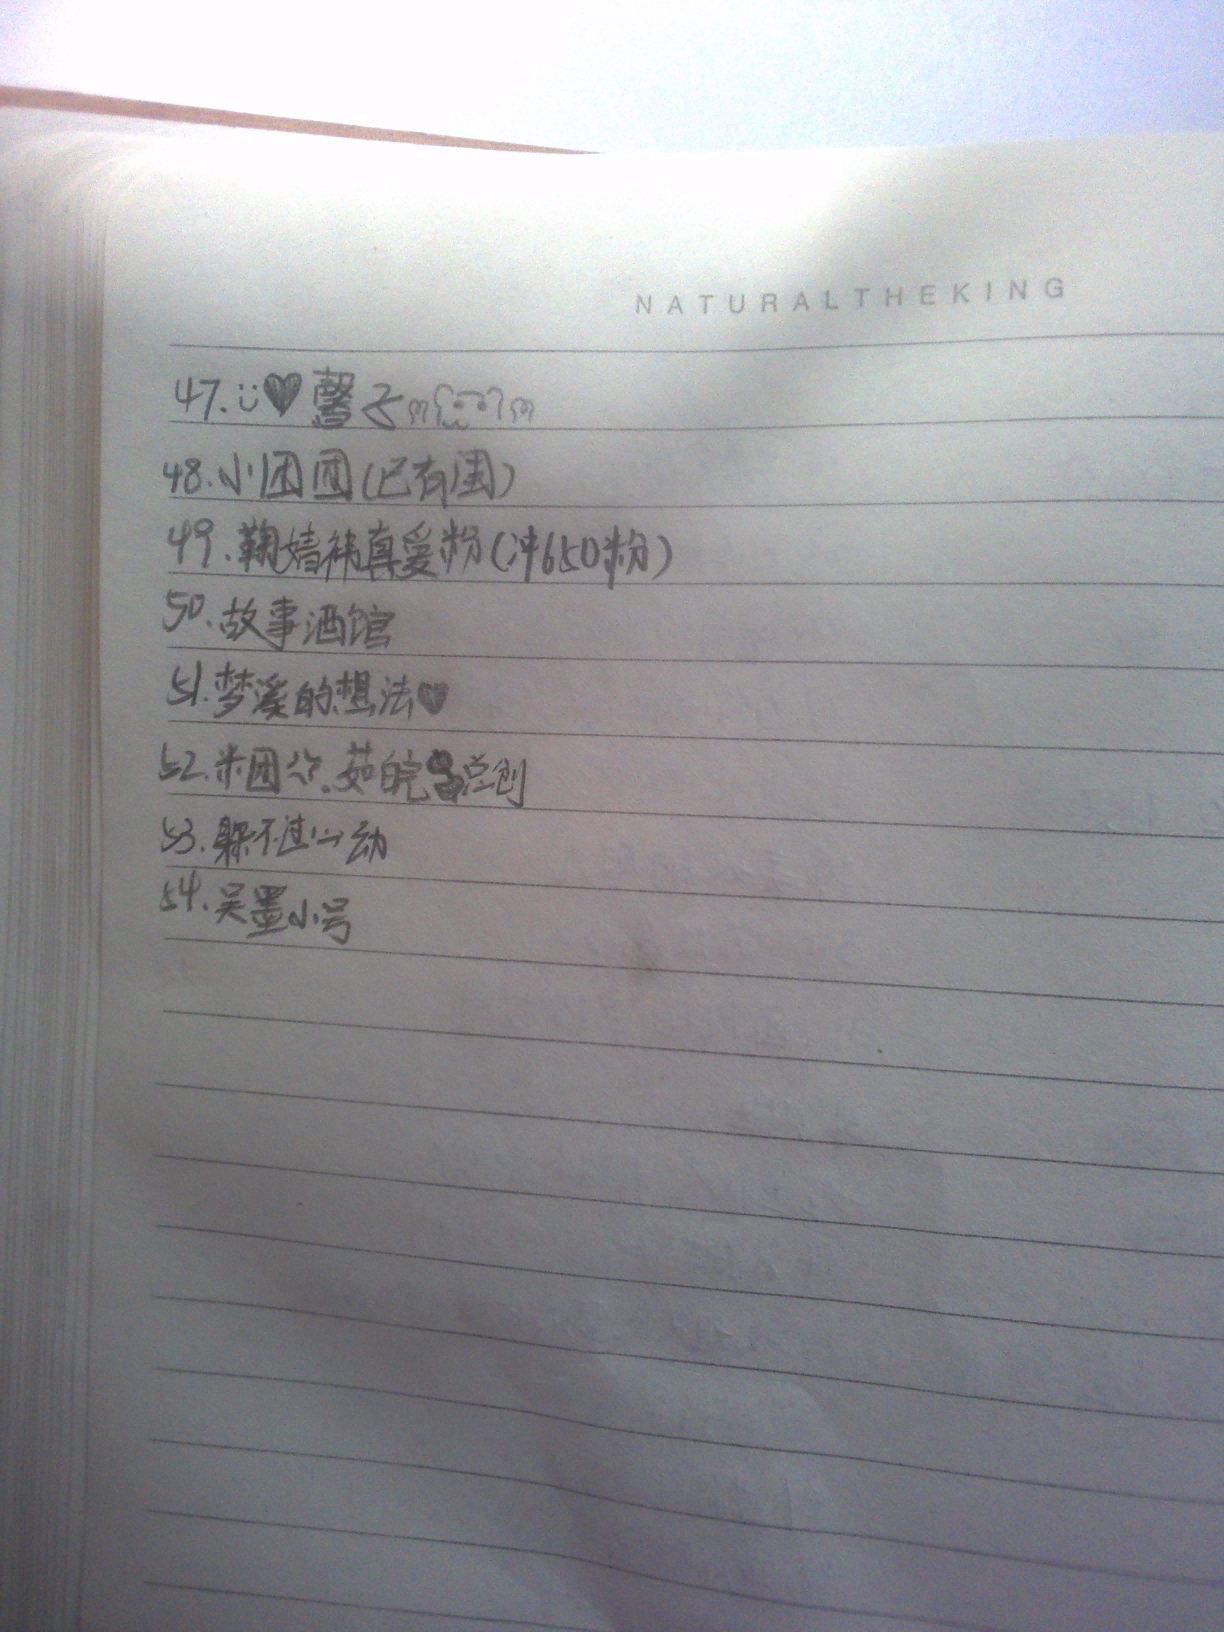 NATURALTHEKING
47.ü♥馨子
48.小团团(已有团)
49.鞠婧祎真爱粉(冲650粉)
50.故事酒馆
51.梦溪的想法♥
52.米团 .茹皖 点创
53.躲不过心动
54.吴墨小号